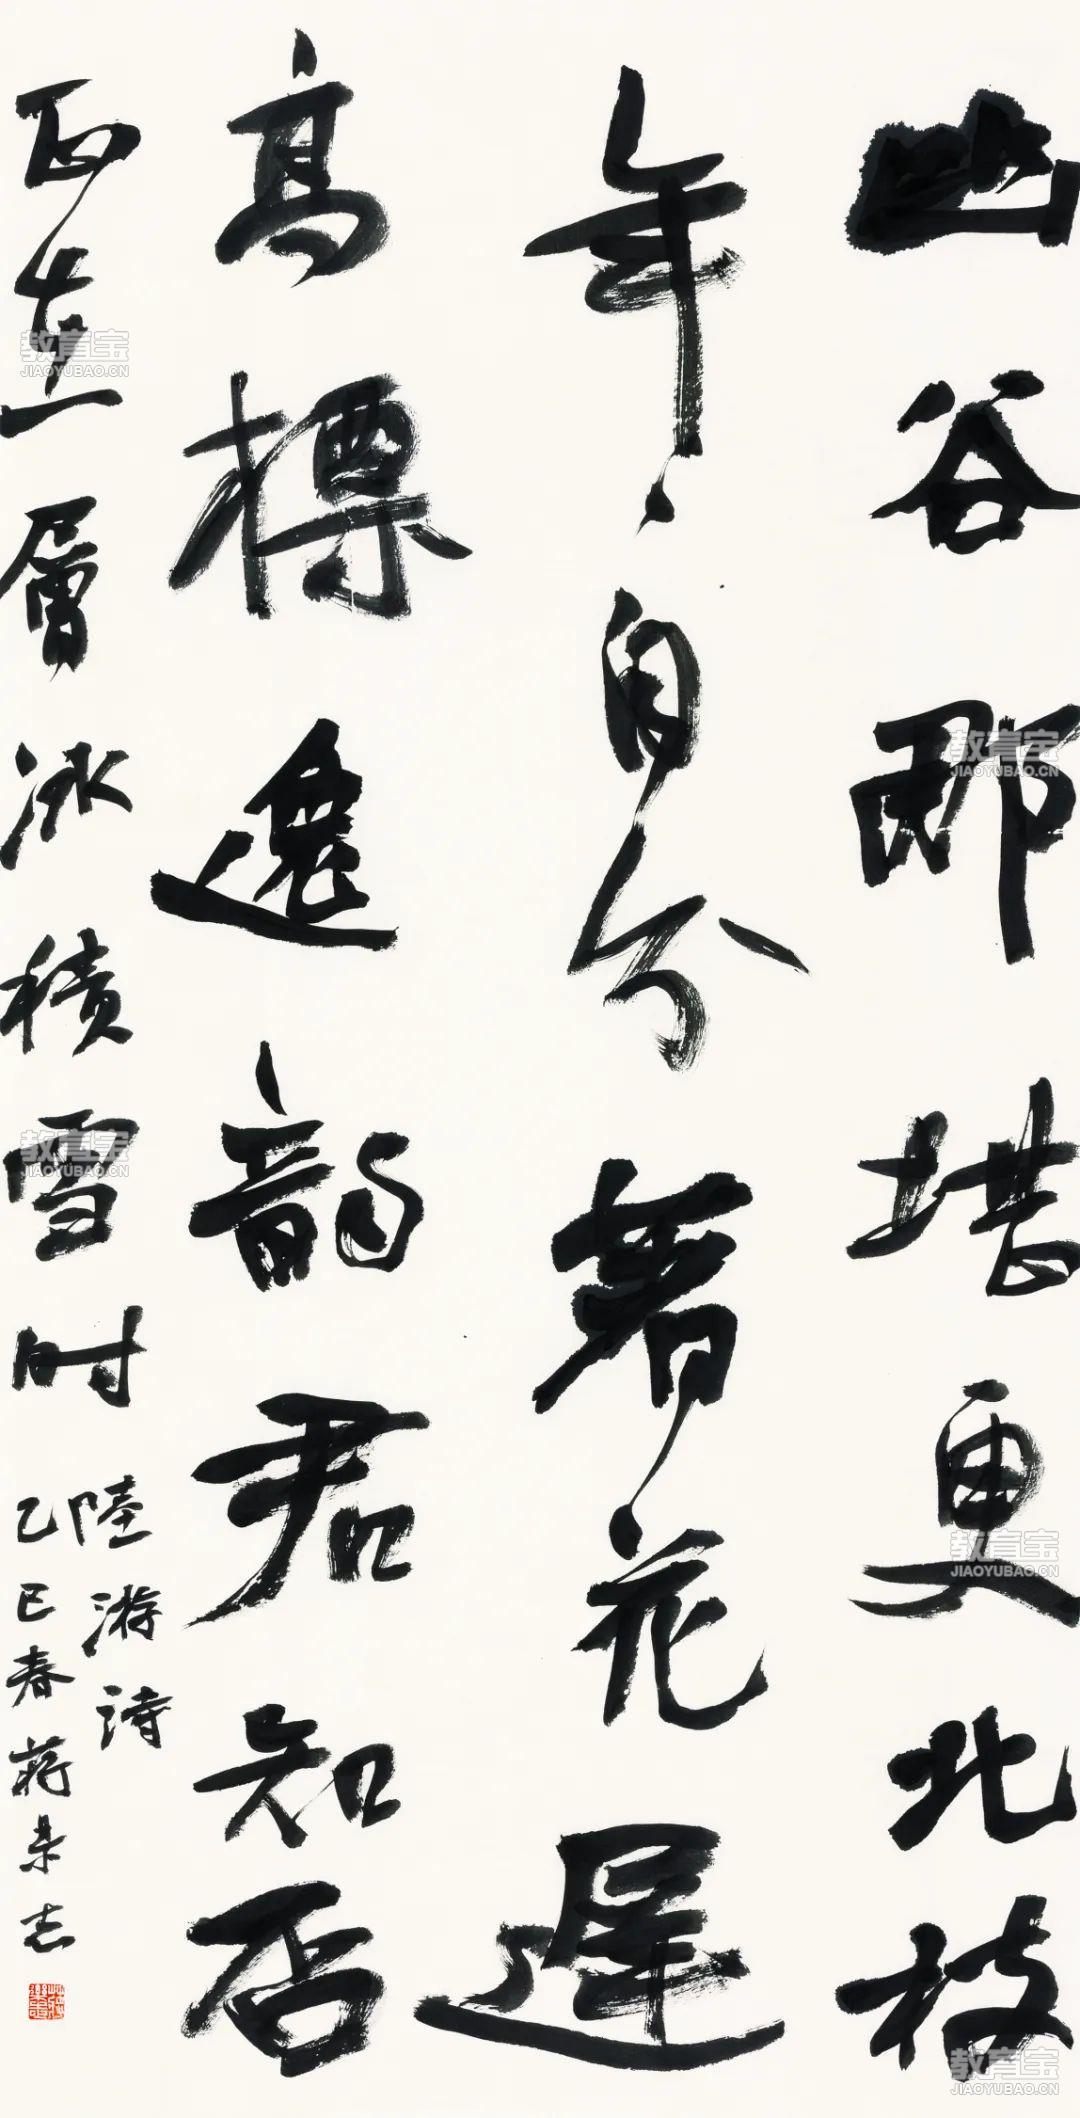 幽谷那堪更北枝
年々自分著花遲
高標逸韵君知否
正在層冰積雪时
陸游詩
乙巳春蒋乐志
教育宝
JIAOYUBAO.CN
教育宝
JIAOYUBAO.CN
教育宝
JIAOYUBAO.CN
教育宝
JIAOYUBAO.CN
教育宝
JIAOYUBAO.CN
教育宝
JIAOYUBAO.CN